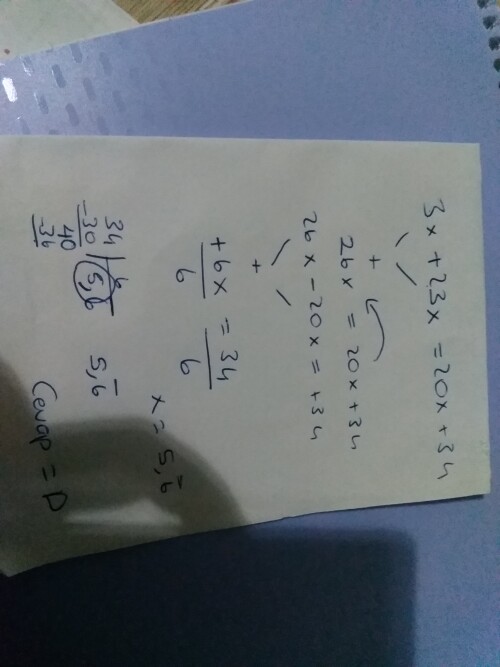 3x + 23x = 20x + 34
+
26x = 20x + 34
26x - 20x = +34
+
+6x = 34
6 6
x = 5,6̅
34 | 6
-30 5,6
40
-36
5,6̅
Cevap = D